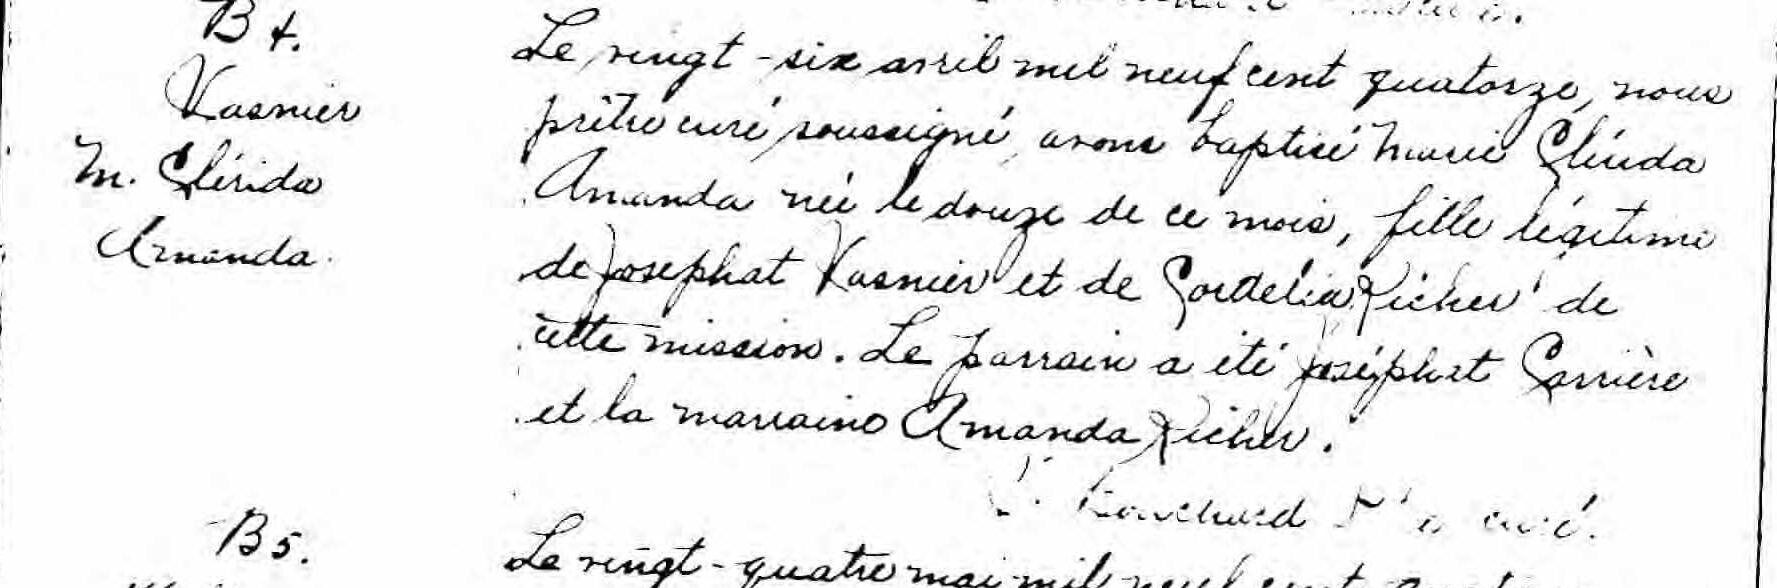 B4.
Vasnier
M. Clérida
Amanda.
Le vingt-six avril mil neuf cent quatorze, nous
prêtre curé soussigné, avons baptisé Marie Clérida
Amanda née le douze de ce mois, fille légitime
de Josephat Vasnier et de Cordélia Richer de
cette mission. Le parrain a été Joséphat Carrière
et la marraine Amanda Richer.
curé.
B5.
Le vingt-quatre mai mil neuf cent